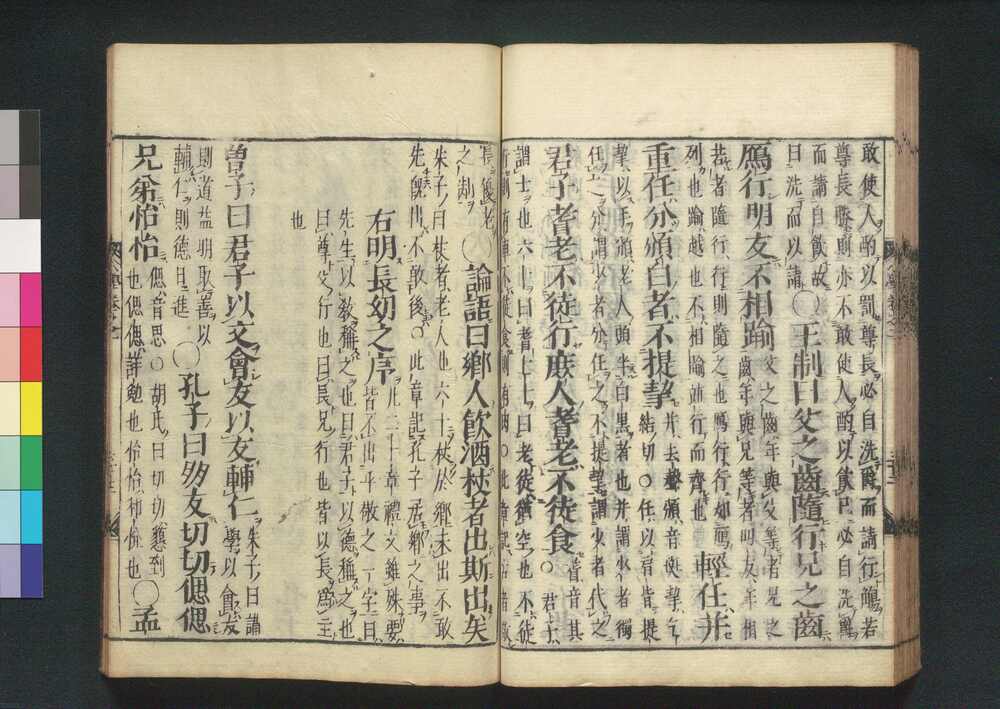 敢使人酌以罰尊長必自洗爵而請行觴若
尊長勝則亦不敢使人酌以飲己必自洗爵
而請自飲故
曰洗而以請○王制曰父之齒隨行兄之齒
鴈行朋友不相踰父之齒年與父等者兄之
齒年與兄等者朋友年相
若者隨行行則隨之也鴈行行如鴈
列也踰越也不相踰並行而齊也輕任并
重任分頒白者不提挈并去聲頒音班挈
結切○任以肩皆提
挈以手頒老人頭半白黑者也并謂少者獨
任之分謂少者分任之不提挈謂少者代之
君子耆老不徒行庶人耆老不徒食耆音其
○君子
謂士也六十曰耆七十曰老徒猶空也不徒
論語曰鄉人飲酒杖者出斯出矣
朱子曰杖者老人也六十杖於鄉未出不敢
先既出不敢後○此章記孔子居鄉之事
右明長幼之序此二十章禮文雖殊要
皆不出乎敬之一字曰
先生以教稱之也曰君子以德稱之也
曰尊父行也曰長兄行也皆以長爲主
也
曾子曰君子以文會友以友輔仁朱子曰講
學以會友
則道益明取善以
輔仁則德日進○孔子曰朋友切切偲偲
兄弟怡怡偲音思○胡氏曰切切懇到
也偲偲詳勉也怡怡和悅也○孟